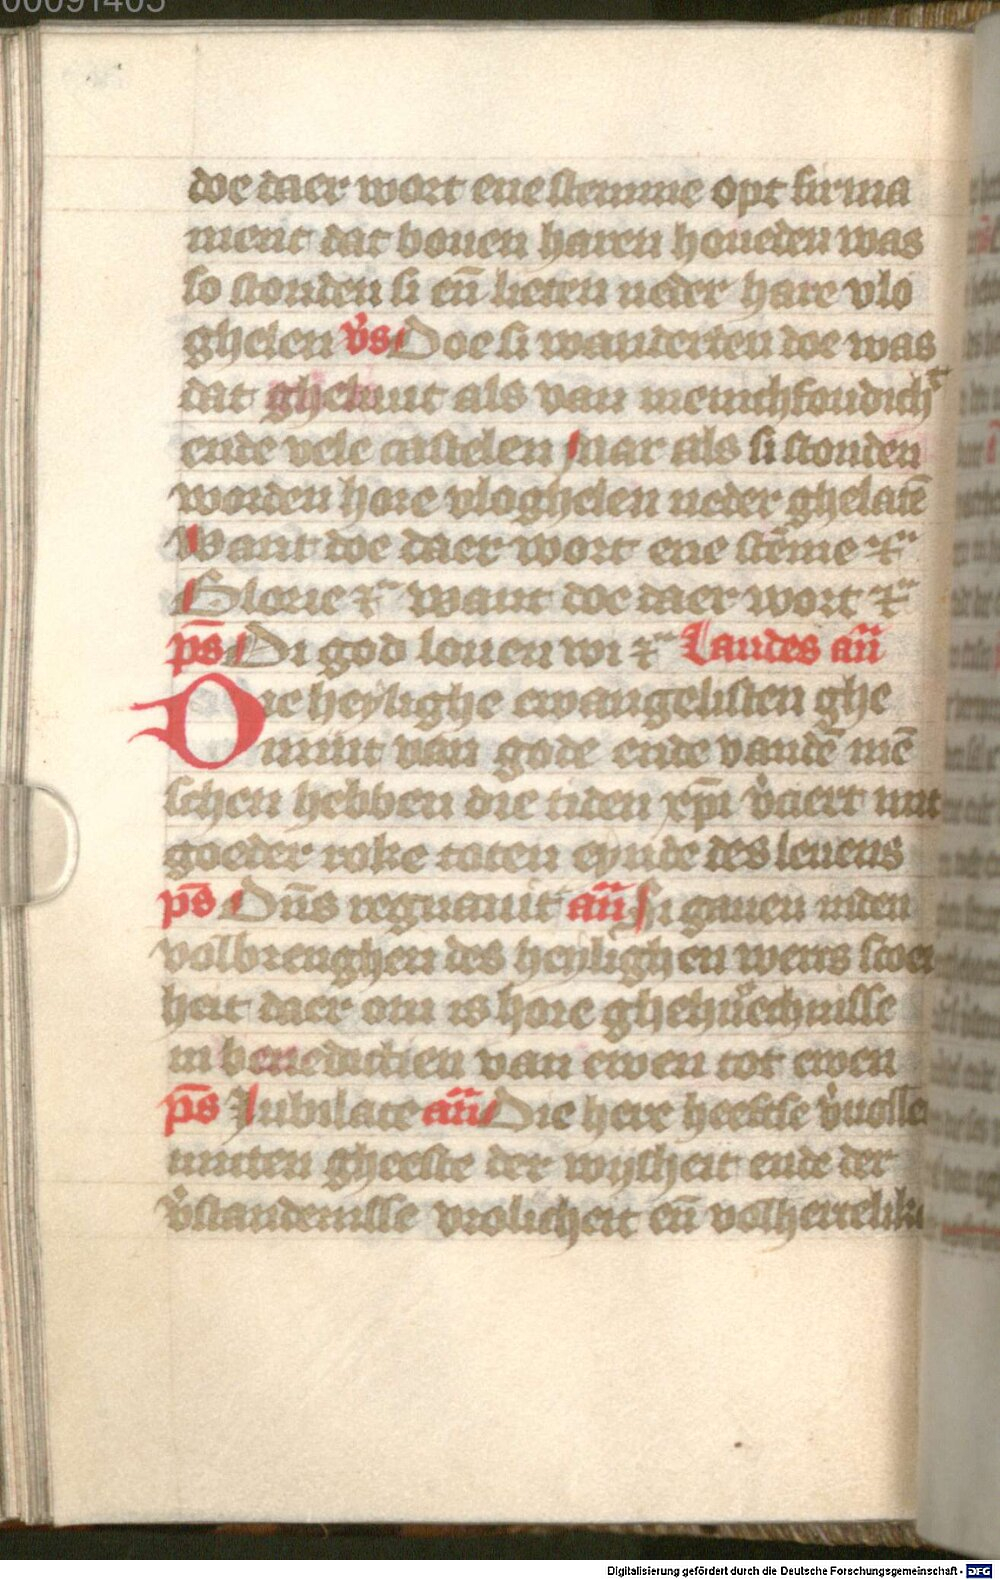 00091405
doe daer wort ene stemme opt firma
ment dat bouen haren houeden was
so stonden si en̄ lieten neder hare vlo
ghelen v̓s Doe si wanderten doe was
dat gheluut als van menichfoudich͛
ende vele castelen maar als si stonden
worden hore vloghelen neder ghelatē
Want doe daer wort ene stēme ⁊c̄
Glorie ⁊c̄ want doe daer wort ⁊c̄
ps̄ Di god louen wi ⁊c̄ Laudes an̄
Die heylighe ewangelisten ghe
mint van gode ende vandē mē
schen hebben die tiden xp̄i v̓ciert mit
goeder roke toten eynde des leuens
ps̄ Dn̄s regnauit an̄ Si gauen inden
volbrenghen des heylighen wercs scoen
heit daer om is hore ghehue͛chnisse
in benedictien van ewen tot ewen
ps̄ Jubilate an̄ Die here heeftse v̓uollet
mitten gheeste der wijsheit ende der
v̓standenisse vrolicheit en̄ volherrelike
Digitalisierung gefördert durch die Deutsche Forschungsgemeinschaft - DFG